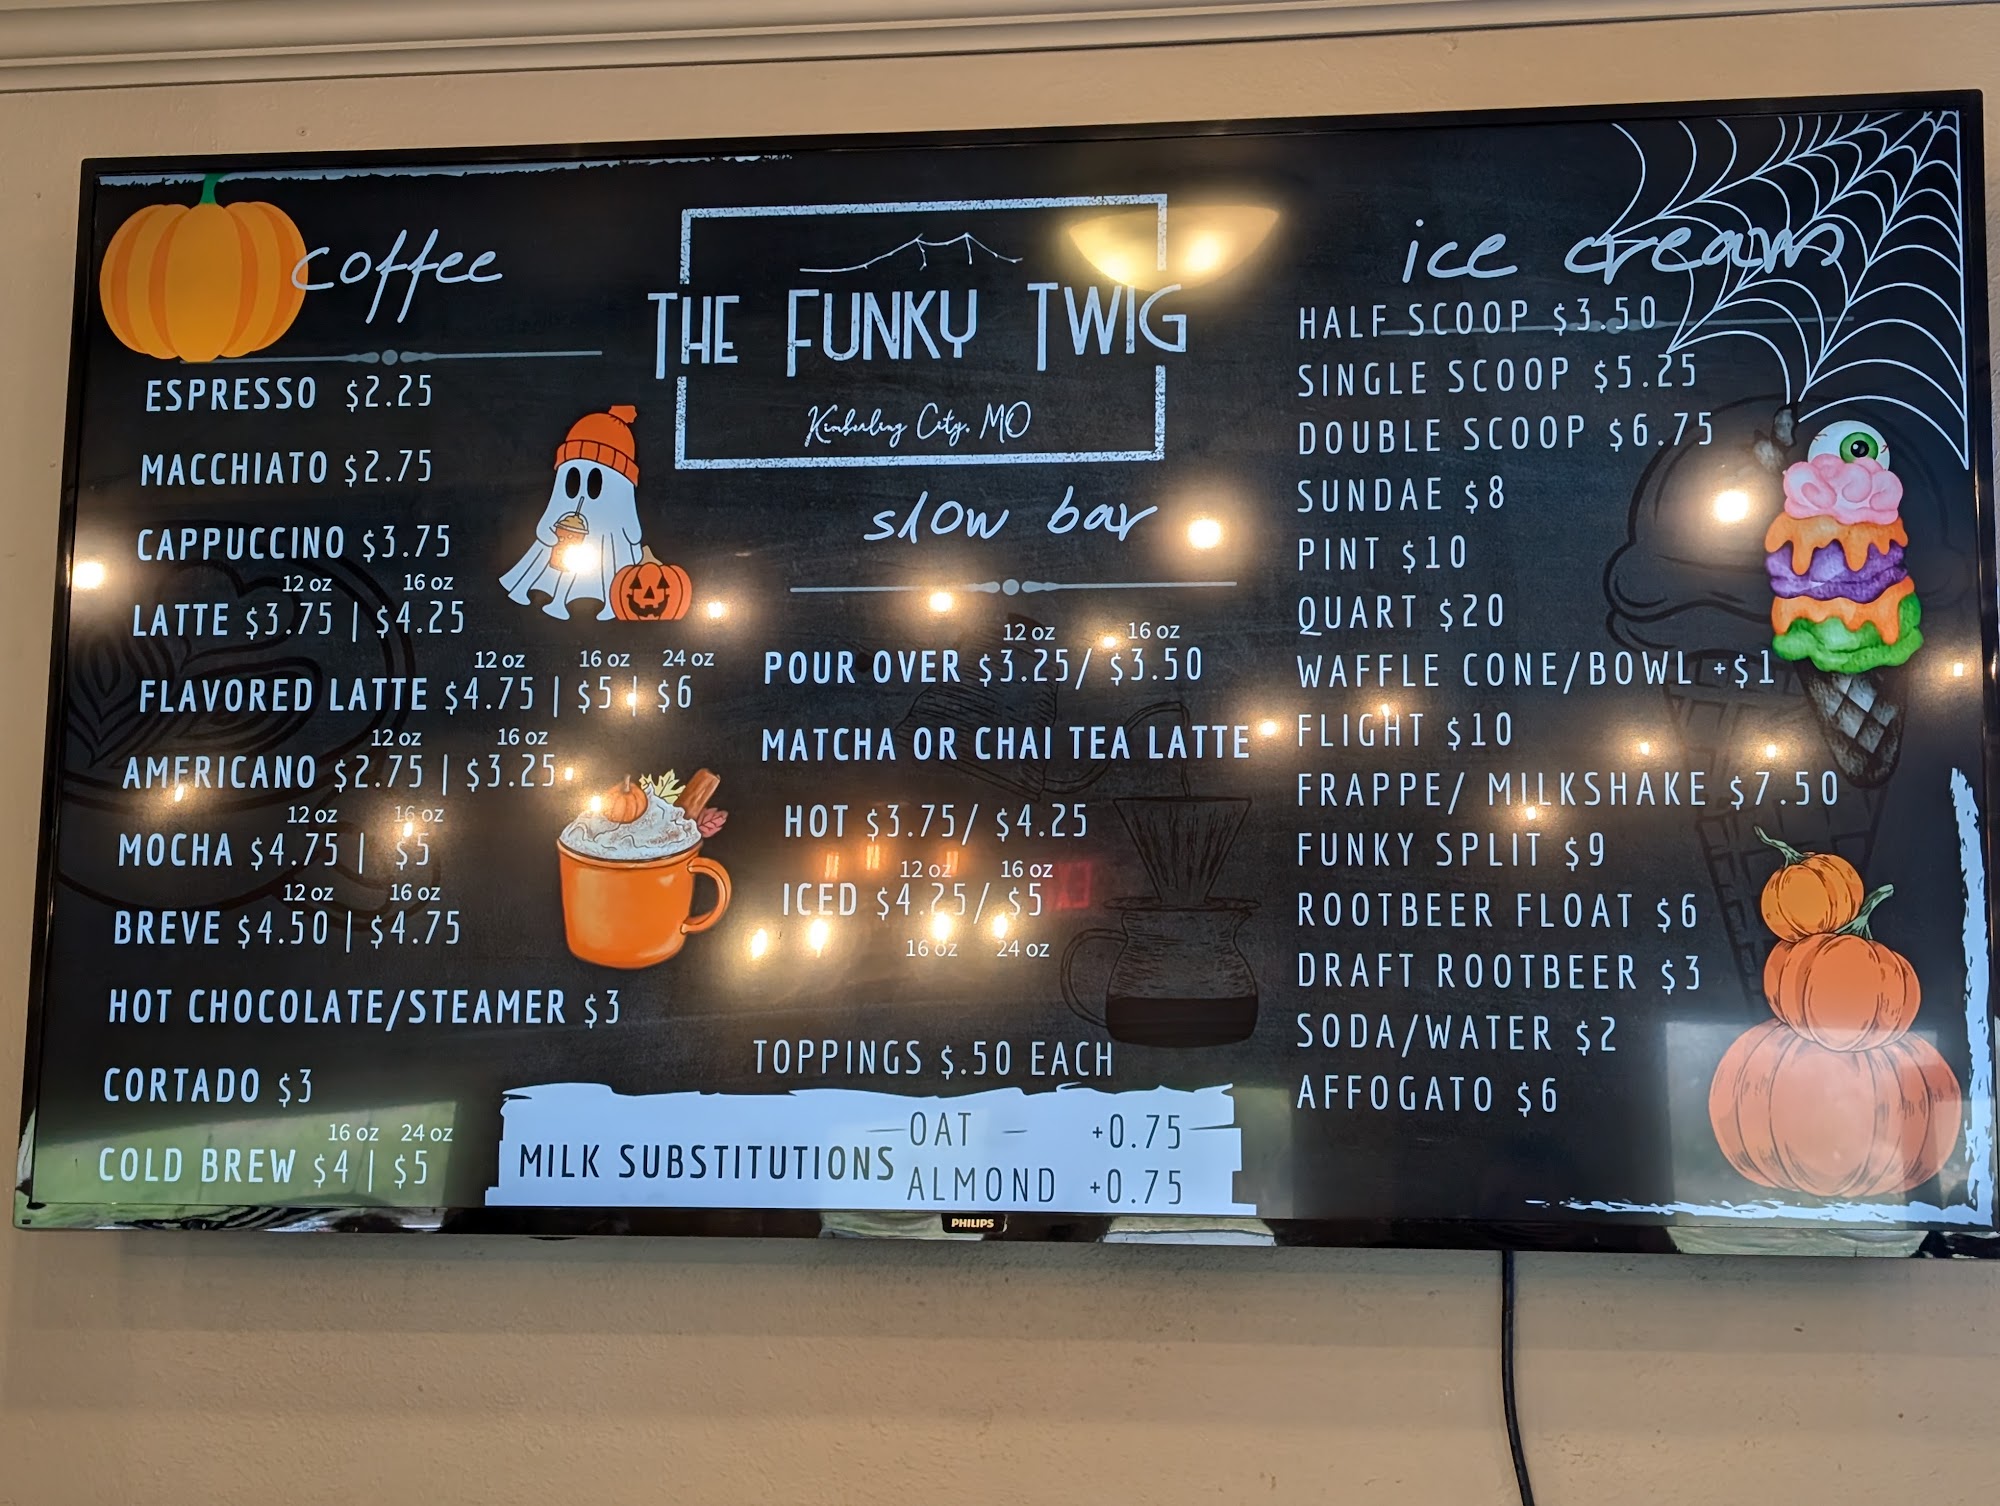 coffee
ESPRESSO $2.25
MACCHIATO $2.75
CAPPUCCINO $3.75
12 oz 16 oz
LATTE $3.75 | $4.25
12 oz 16 oz 24 oz
FLAVORED LATTE $4.75 | $5 | $6
12 oz 16 oz
AMERICANO $2.75 | $3.25
12 oz 16 oz
MOCHA $4.75 | $5
12 oz 16 oz
BREVE $4.50 | $4.75
HOT CHOCOLATE/STEAMER $3
CORTADO $3
16 oz 24 oz
COLD BREW $4 | $5
THE FUNKY TWIG
Kimberling City, MO
slow bar
12 oz 16 oz
POUR OVER $3.25/ $3.50
MATCHA OR CHAI TEA LATTE
HOT $3.75/ $4.25
12 oz 16 oz
ICED $4.25/ $5
16 oz 24 oz
TOPPINGS $.50 EACH
MILK SUBSTITUTIONS
OAT - +0.75
ALMOND +0.75
ice cream
HALF SCOOP $3.50
SINGLE SCOOP $5.25
DOUBLE SCOOP $6.75
SUNDAE $8
PINT $10
QUART $20
WAFFLE CONE/BOWL +$1
FLIGHT $10
FRAPPE/ MILKSHAKE $7.50
FUNKY SPLIT $9
ROOTBEER FLOAT $6
DRAFT ROOTBEER $3
SODA/WATER $2
AFFOGATO $6
PHILIPS